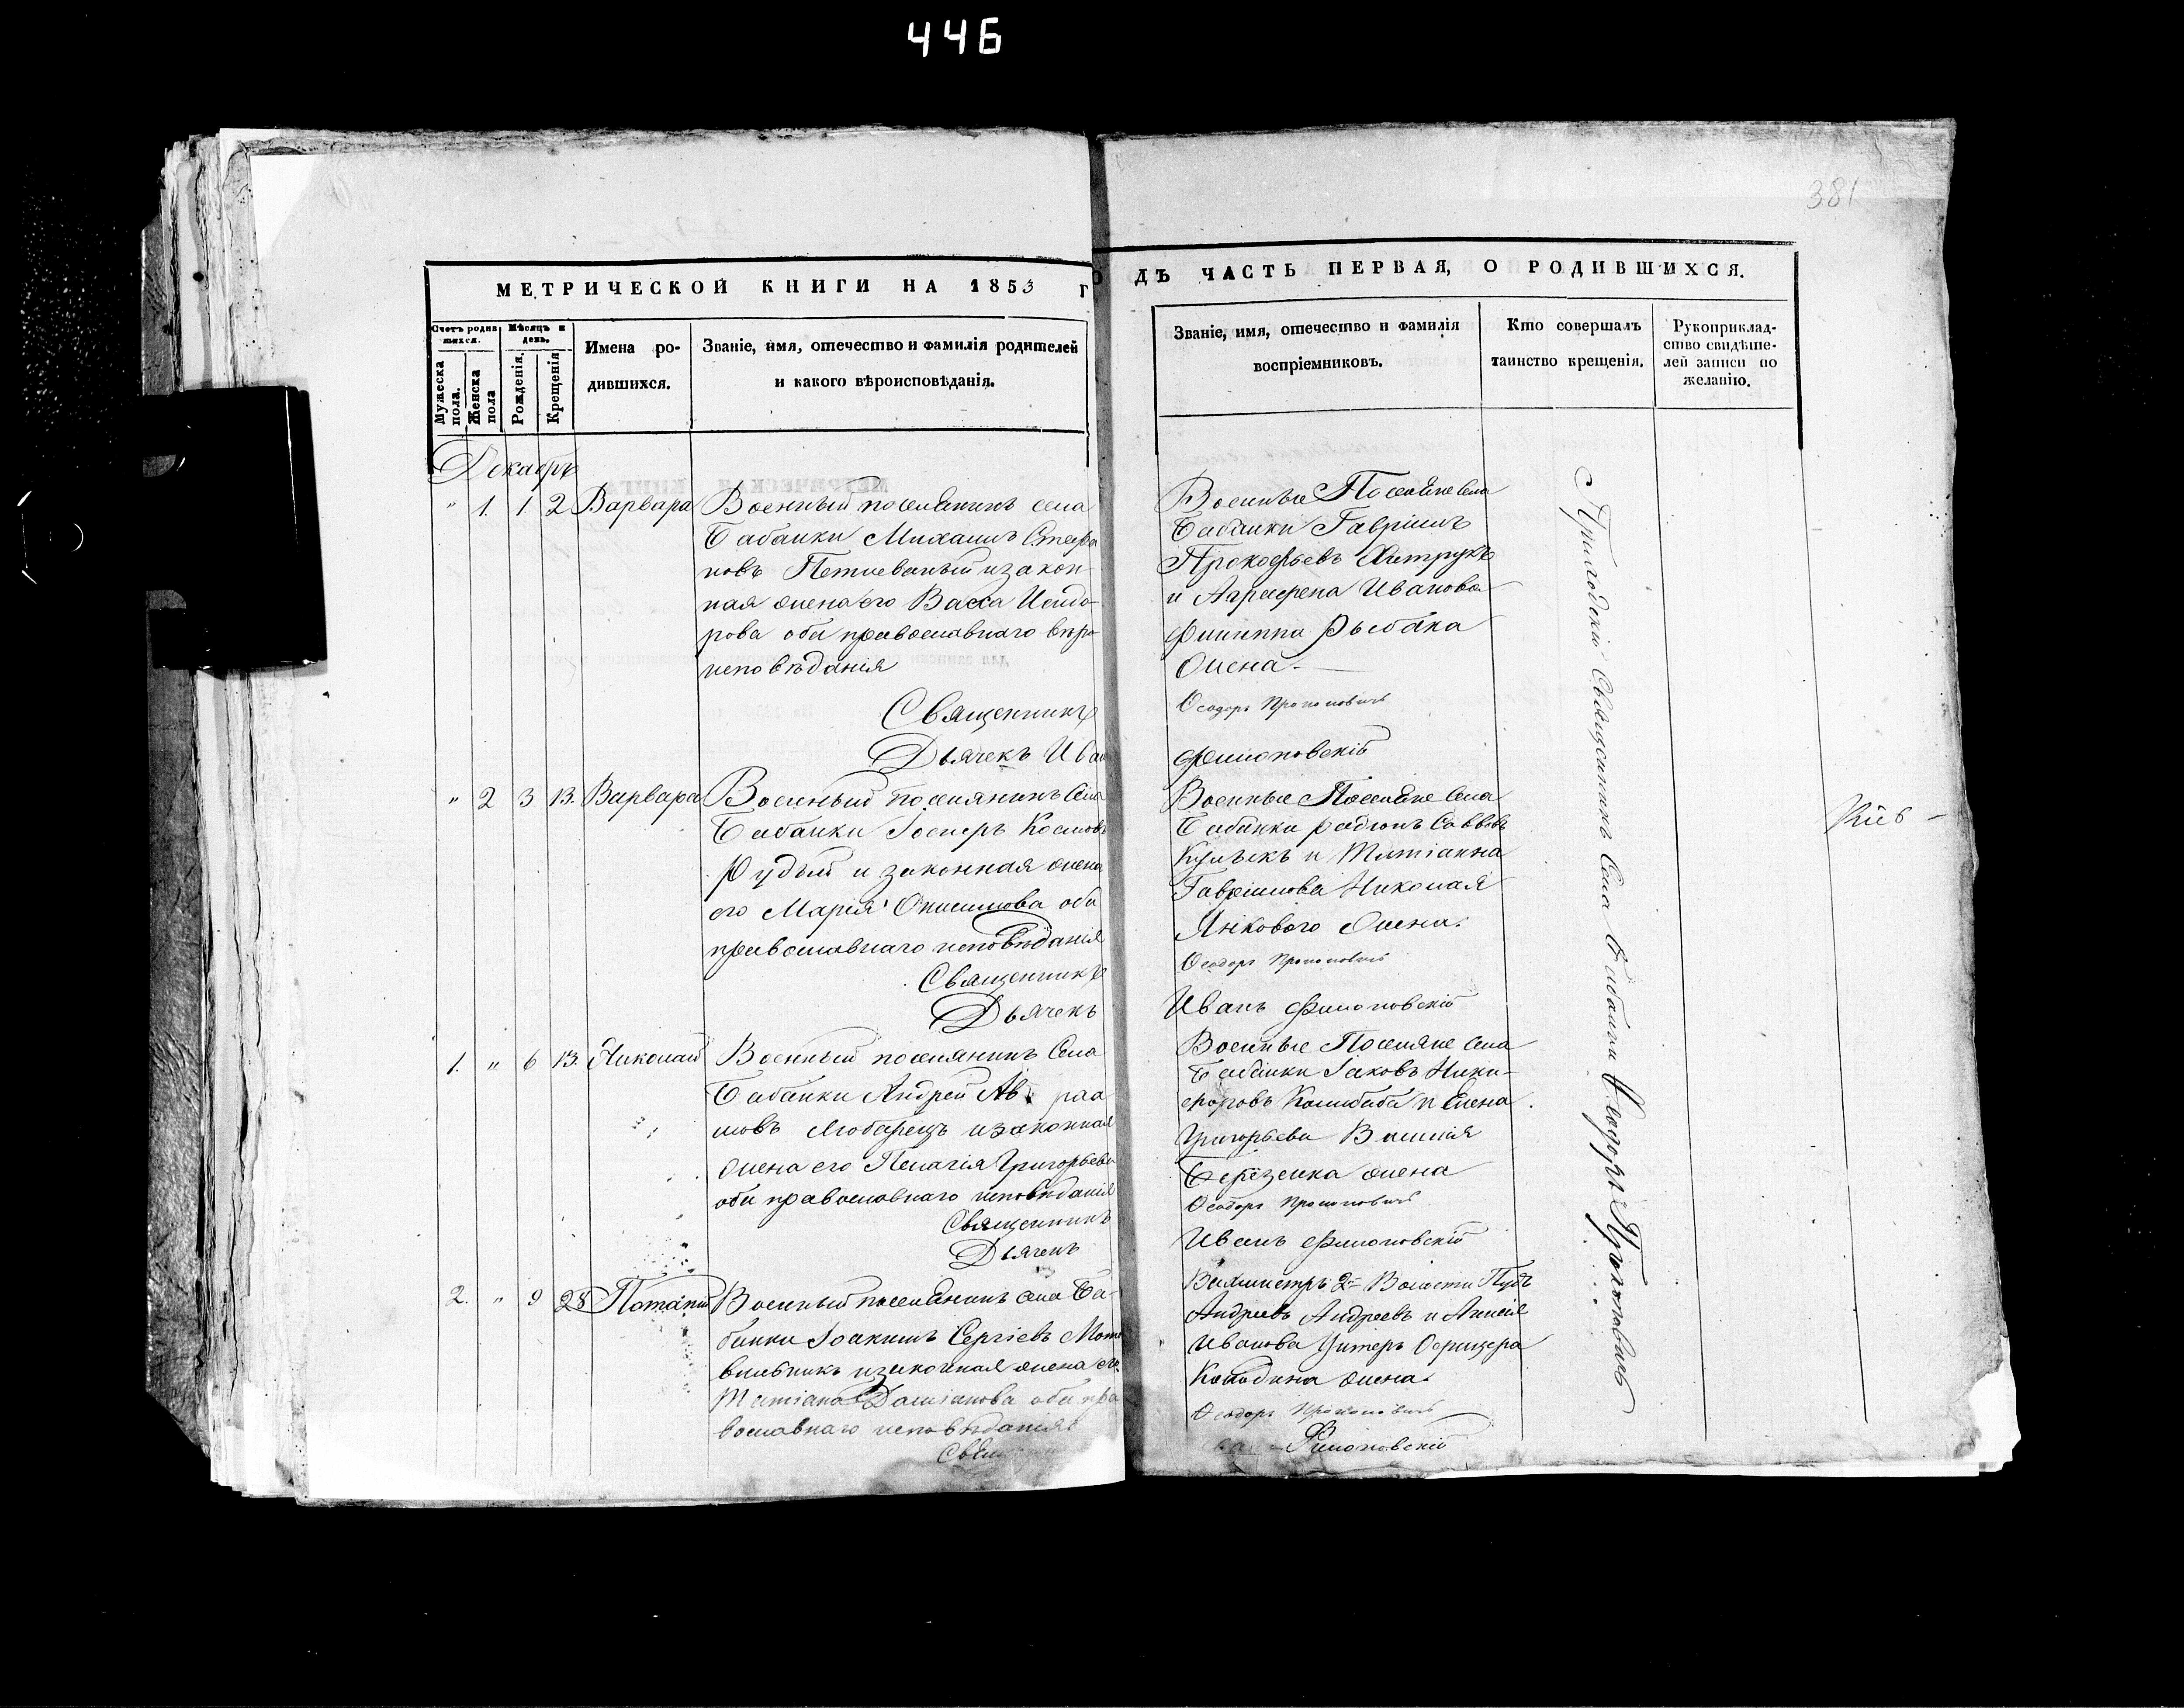 446
381
МЕТРИЧЕСКОЙ КНИГИ НА 1853 Г
О ДЪ ЧАСТЬ ПЕРВАЯ, О РОДИВШИХСЯ.
Счетъ родив
шихся.
Мѣсяцъ и
день.
Мужеска
пола.
Женска
пола
Рожденія.
Крещенія
Имена ро-
дившихся.
Званіе, имя, отечество и фамилія родителей
и какого вѣроисповѣданія.
Званіе, имя, отечество и фамилія
воспріемниковъ.
Кто совершалъ
таинство крещенія.
Рукоприклад-
ство свидѣте-
лей записи по
желанію.
Декабрь
" 1. 1 2 Варвара
Военный поселянинъ села
Бабанки Михаилъ Стефа
новъ Петлеваный и закон
ная жена его Васса Исидо-
рова оба православнаго вѣро
исповѣданія
Священникъ
Дьячекъ Иван
Военные Поселяне Села
Бабанки Гавріилъ
Прокофьевъ Хитрукъ
и Агрифена Иванова
Филиппа Рыбака
жена.
Ѳеодоръ Прокоповичъ
Филоновскій
" 2 3 13. Варвара
Военный поселянинъ Села
Бабанки Іосифъ Космовъ
Рудый и законная жена
его Марія Онисимова оба
православнаго исповѣданія
Священникъ
Дьячекъ
Военные Поселяне Села
Бабанки Радіонъ Саввовъ
и Татіанна
Гавріилова Николая
жена.
Ѳеодоръ Прокоповичъ
Иванъ Филоновскій
1. " 6 13. Николай
Военный поселянинъ Села
Бабанки Андрей Ав раа
мовъ Любарецъ и законная
жена его Пелагія Григорьева
оба православнаго исповѣданія
Священникъ
Дьячекъ
Военные Поселяне Села
Бабанки Іаковъ Ники-
форовъ и Елена
Григорьева Василія
Березенка жена
Ѳеодоръ Прокоповичъ
Иванъ Филоновскій
2. " 9 28 Потапій
Военный поселянинъ села Ба-
банки Іоакимъ Сергіевъ
и законная жена его
Татіана Даміанова оба пра
вославнаго исповѣданія
Вахмистръ 2й Волости
Андреевъ Андреевъ и
Иванова Унтеръ Офицера
жена.
Ѳеодоръ Прокоповичъ
Филоновскій
Приходскій Священникъ Села Бабанки Ѳеодоръ Прокоповичъ